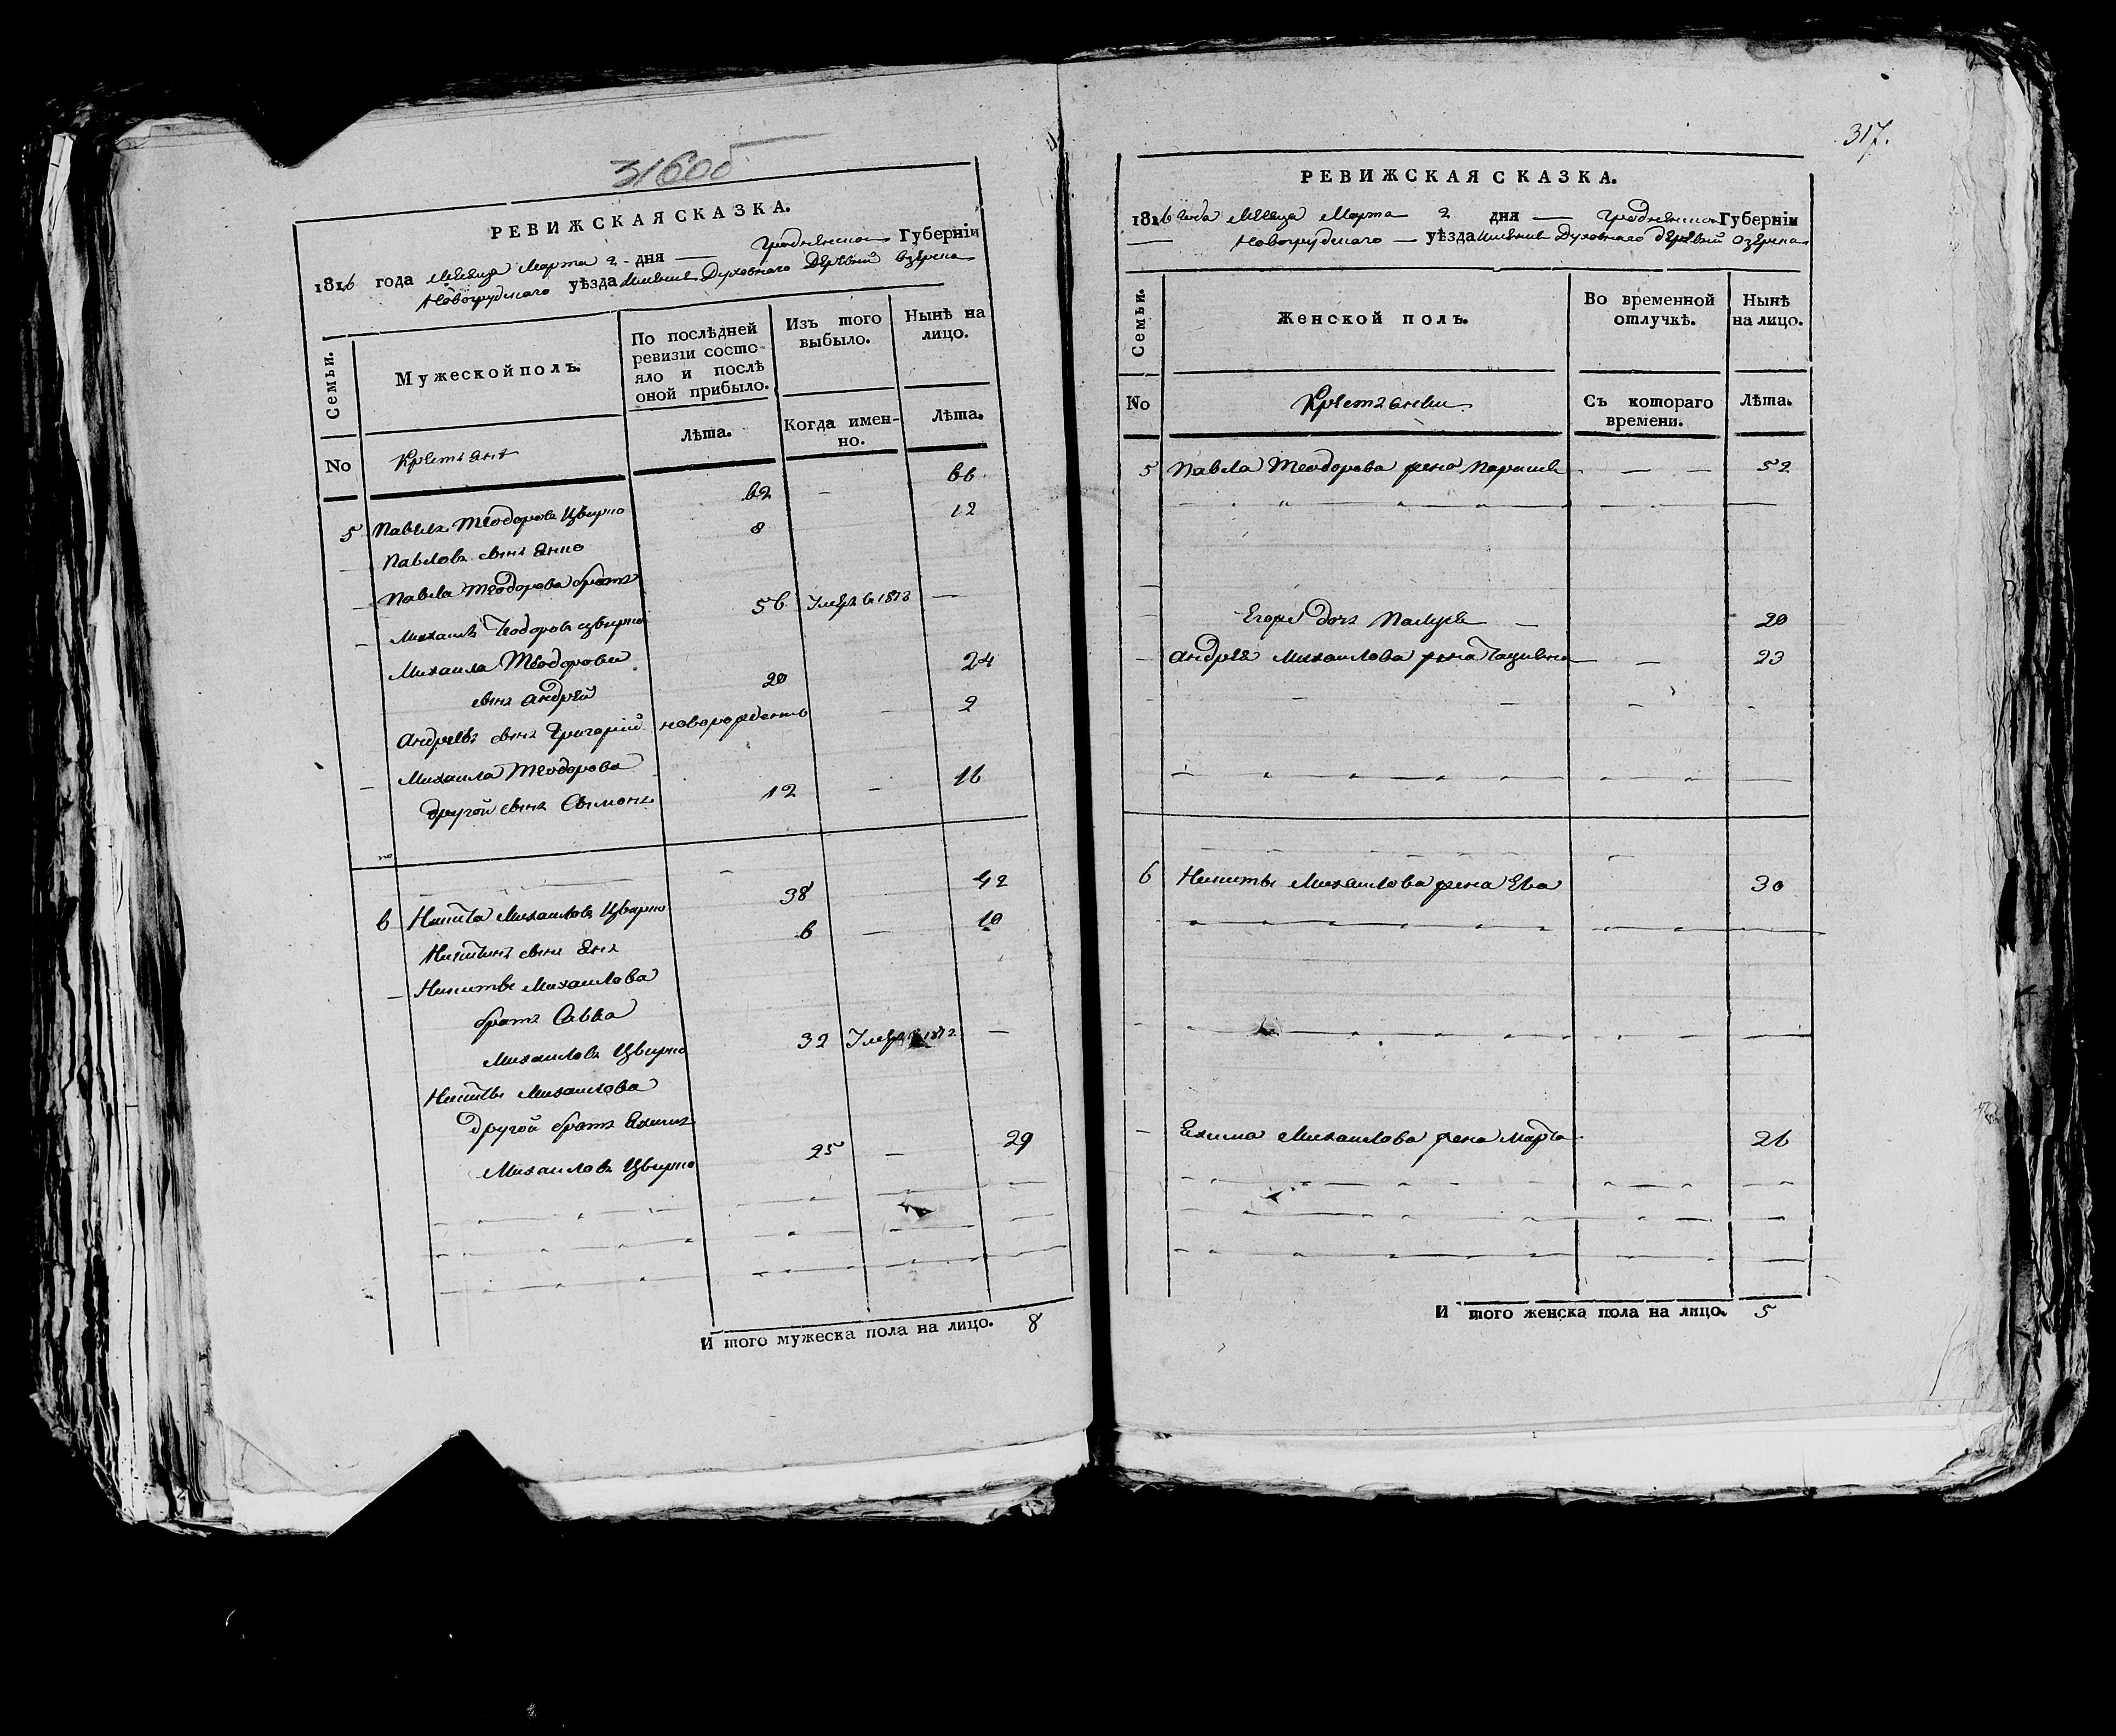 316об
РЕВИЖСКАЯ СКАЗКА.
1816 года Месяца Марта 2 дня — Гродненской Губернїи
Новогрудскаго уѣзда Имѣния Духовнаго Деревни Озерка
Семьи.
Мужеской полъ.
По послѣдней ревизїи состояло и послѣ оной прибыло.
Изъ того выбыло.
Нынѣ на лицо.
No
Крестьянъ
Лѣта.
Когда именно.
Лѣта.
5 Павелъ Теодоровъ Цвирко 62 — 66
Павловъ сынъ Янко 8 12
— Павла Теодорова братъ
— Михаилъ Теодоровъ Цвирко 56 Умер в 1813 —
Михаила Теодорова
сынъ Андрей 20 24
Андреевъ сынъ Григорій новорожденъ — 2
— Михаила Теодорова
другой сынъ Сымонъ 12 — 16
6 Никита Михайловъ Цвирко 38 42
Никитинъ сынъ Янъ 6 — 10
— Никиты Михайлова
братъ Савва
Михайловъ Цвирко 32 Умер в 1812 —
Никиты Михайлова
другой братъ Яхимъ
Михайловъ Цвирко 25 — 29
И того мужеска пола на лицо. 8
317.
РЕВИЖСКАЯ СКАЗКА.
1816 года Месяца Марта 2 дня — Гродненской Губернїи
— Новогрудскаго — уѣзда Имѣния Духовнаго деревни Озерка
Семьи.
Женской полъ.
Во временной отлучкѣ.
Нынѣ на лицо.
No
Крестьянки
Съ котораго времени.
Лѣта.
5 Павла Теодорова жена 52
Егоже дочь 20
— Андрея Михайлова жена — 23
6 Никиты Михайлова жена Ева 30
— Ехима Михайлова жена Марта 26
И того женска пола на лицо. 5